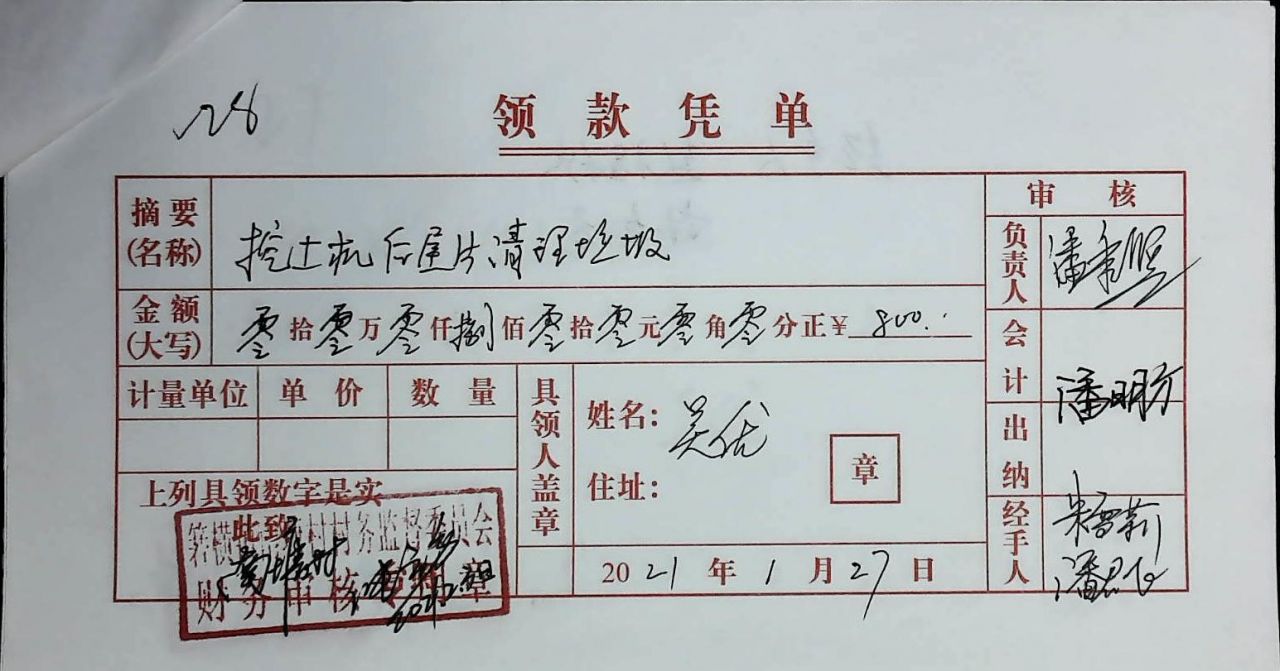 128
领款凭单
摘要(名称) 挖土机后尾片清理垃圾
金额(大写) 零拾零万零仟捌佰零拾零元零角零分正¥ 800.
计量单位 单价 数量
上列具领数字是实
此致
村村务监督委员会
财务审核 章
具领人盖章
姓名: 吴优
住址:
章
2021年1月27日
审核
负责人 潘
会计 潘明方
出纳 朱雪莉
经手人 潘